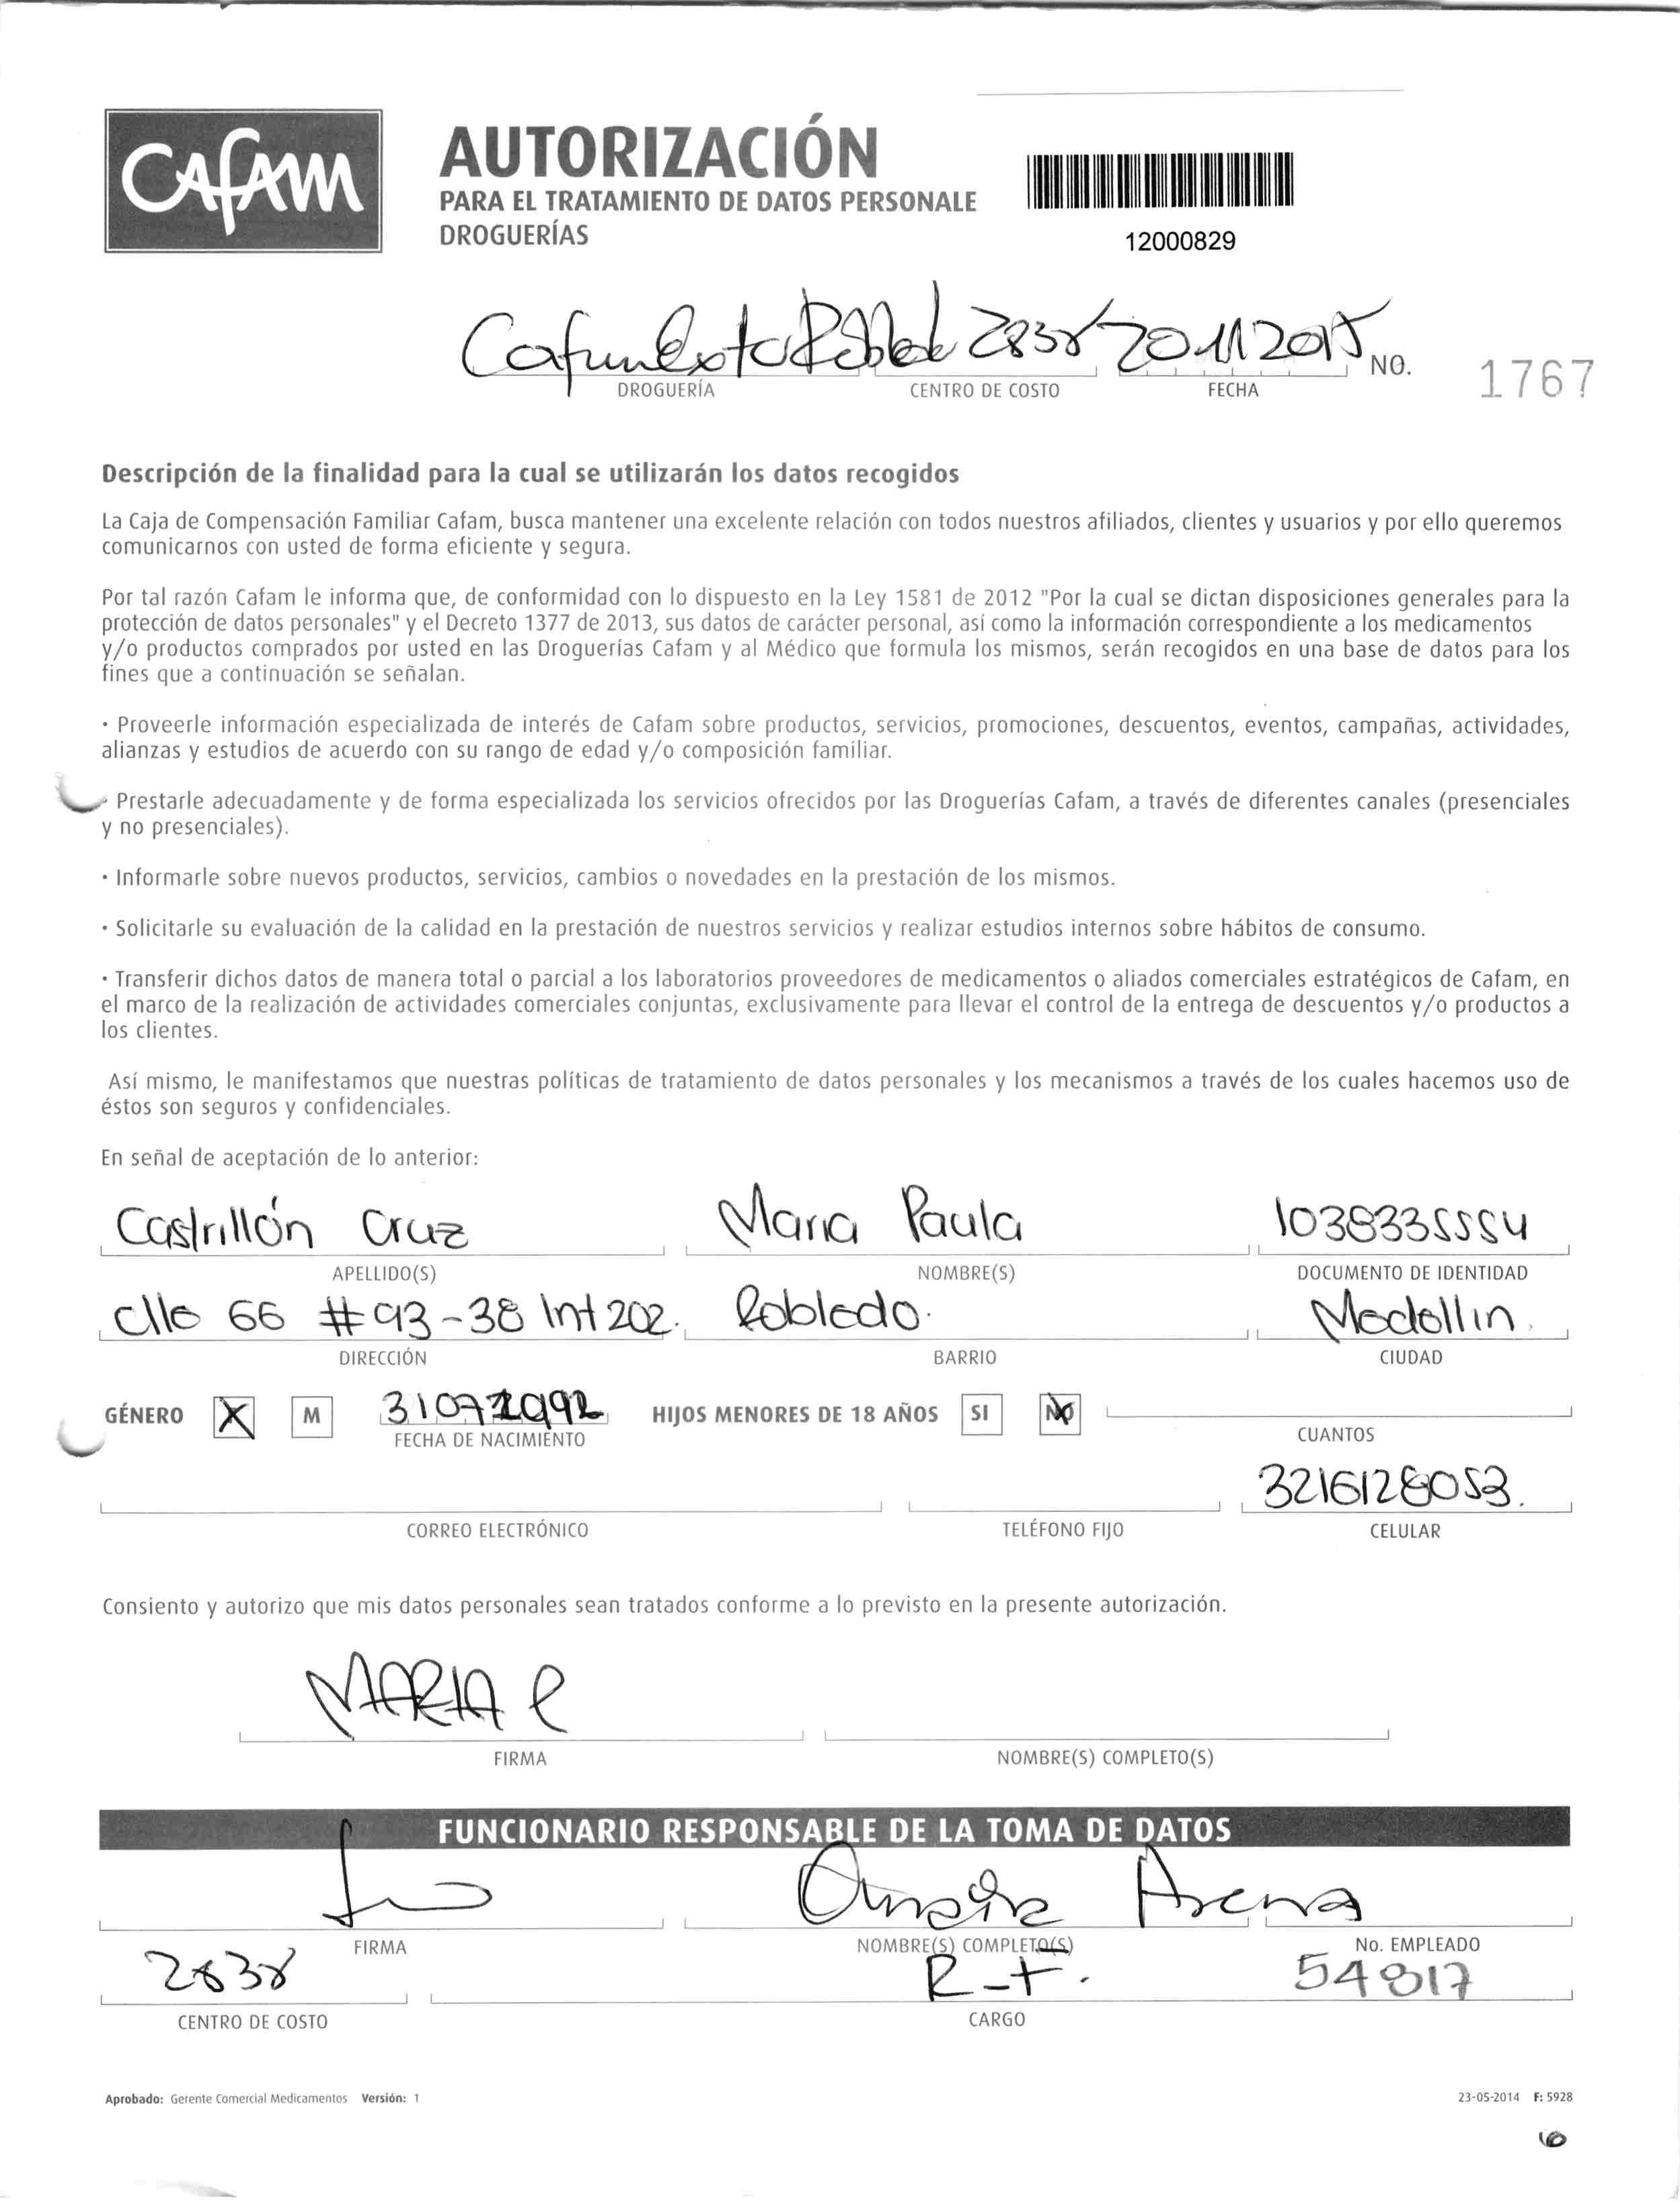 CAFAM
AUTORIZACIÓN
PARA EL TRATAMIENTO DE DATOS PERSONALE
DROGUERÍAS
12000829
2838 20112015
DROGUERÍA CENTRO DE COSTO FECHA NO. 1767
Descripción de la finalidad para la cual se utilizarán los datos recogidos
La Caja de Compensación Familiar Cafam, busca mantener una excelente relación con todos nuestros afiliados, clientes y usuarios y por ello queremos
comunicarnos con usted de forma eficiente y segura.
Por tal razón Cafam le informa que, de conformidad con lo dispuesto en la Ley 1581 de 2012 "Por la cual se dictan disposiciones generales para la
protección de datos personales" y el Decreto 1377 de 2013, sus datos de carácter personal, así como la información correspondiente a los medicamentos
y/o productos comprados por usted en las Droguerías Cafam y al Médico que formula los mismos, serán recogidos en una base de datos para los
fines que a continuación se señalan.
· Proveerle información especializada de interés de Cafam sobre productos, servicios, promociones, descuentos, eventos, campañas, actividades,
alianzas y estudios de acuerdo con su rango de edad y/o composición familiar.
· Prestarle adecuadamente y de forma especializada los servicios ofrecidos por las Droguerías Cafam, a través de diferentes canales (presenciales
y no presenciales).
· Informarle sobre nuevos productos, servicios, cambios o novedades en la prestación de los mismos.
· Solicitarle su evaluación de la calidad en la prestación de nuestros servicios y realizar estudios internos sobre hábitos de consumo.
· Transferir dichos datos de manera total o parcial a los laboratorios proveedores de medicamentos o aliados comerciales estratégicos de Cafam, en
el marco de la realización de actividades comerciales conjuntas, exclusivamente para llevar el control de la entrega de descuentos y/o productos a
los clientes.
Así mismo, le manifestamos que nuestras políticas de tratamiento de datos personales y los mecanismos a través de los cuales hacemos uso de
éstos son seguros y confidenciales.
En señal de aceptación de lo anterior:
Castrillón Cruz Maria Paula 1038335554
APELLIDO(S) NOMBRE(S) DOCUMENTO DE IDENTIDAD
clle 66 #93-38 Int 202. Robledo. Medellin.
DIRECCIÓN BARRIO CIUDAD
GÉNERO X M 31071992 HIJOS MENORES DE 18 AÑOS SI NO
FECHA DE NACIMIENTO CUANTOS
3216128053.
CORREO ELECTRÓNICO TELÉFONO FIJO CELULAR
Consiento y autorizo que mis datos personales sean tratados conforme a lo previsto en la presente autorización.
MARIA P
FIRMA NOMBRE(S) COMPLETO(S)
FUNCIONARIO RESPONSABLE DE LA TOMA DE DATOS
FIRMA NOMBRE(S) COMPLETO(S) No. EMPLEADO
2838 R-t. 54817
CENTRO DE COSTO CARGO
Aprobado: Gerente Comercial Medicamentos Versión: 1 23-05-2014 F: 5928